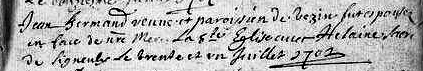 Jean Hermand veuve et paroissien de Vezin fut espousez
en face de nre Mere La Ste Eglise avec Helaine
de Signeulx Le trente et un Juillet 1702